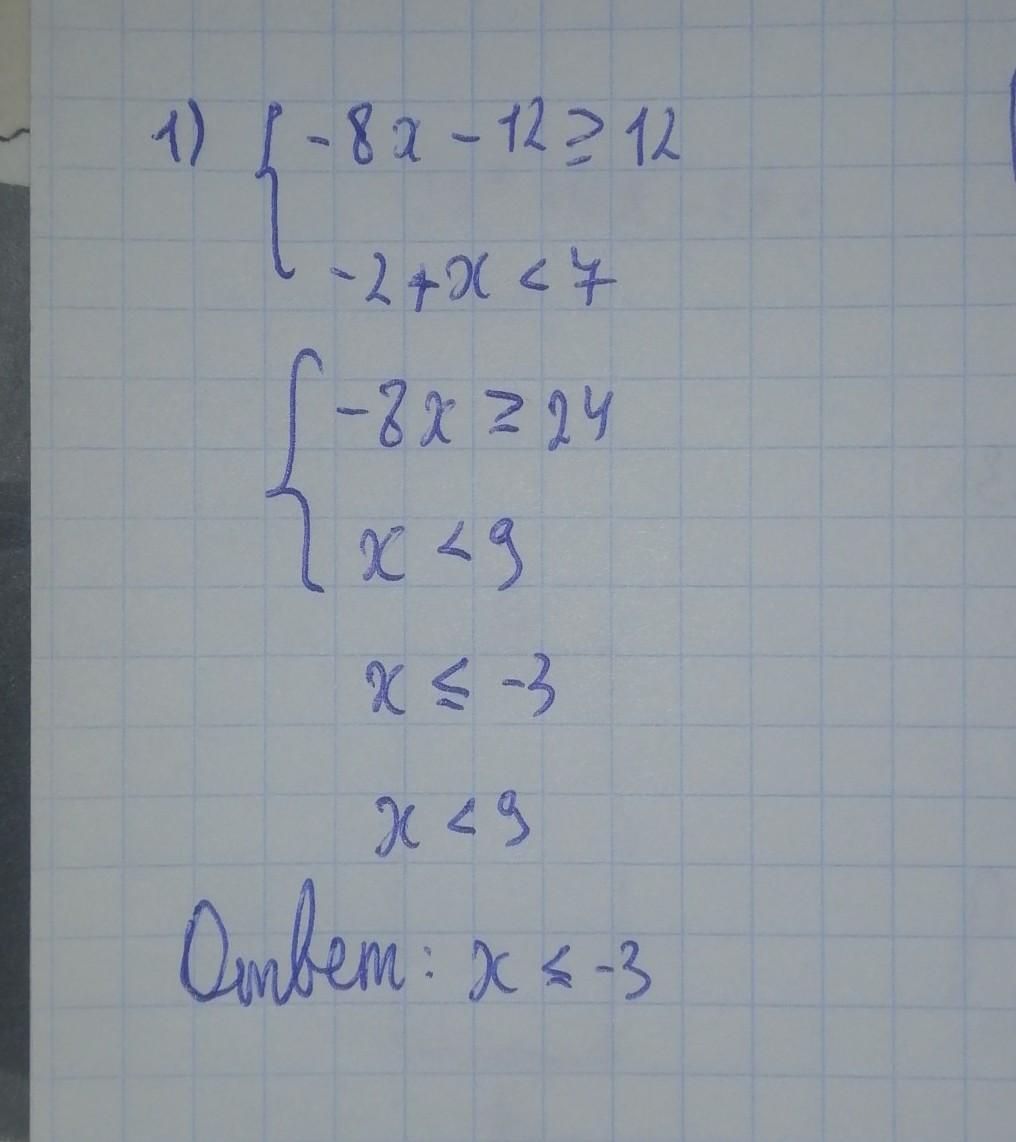 1) { -8x - 12 ≥ 12
-2 + x < 7
{ -8x ≥ 24
x < 9
x ≤ -3
x < 9
Ответ: x ≤ -3